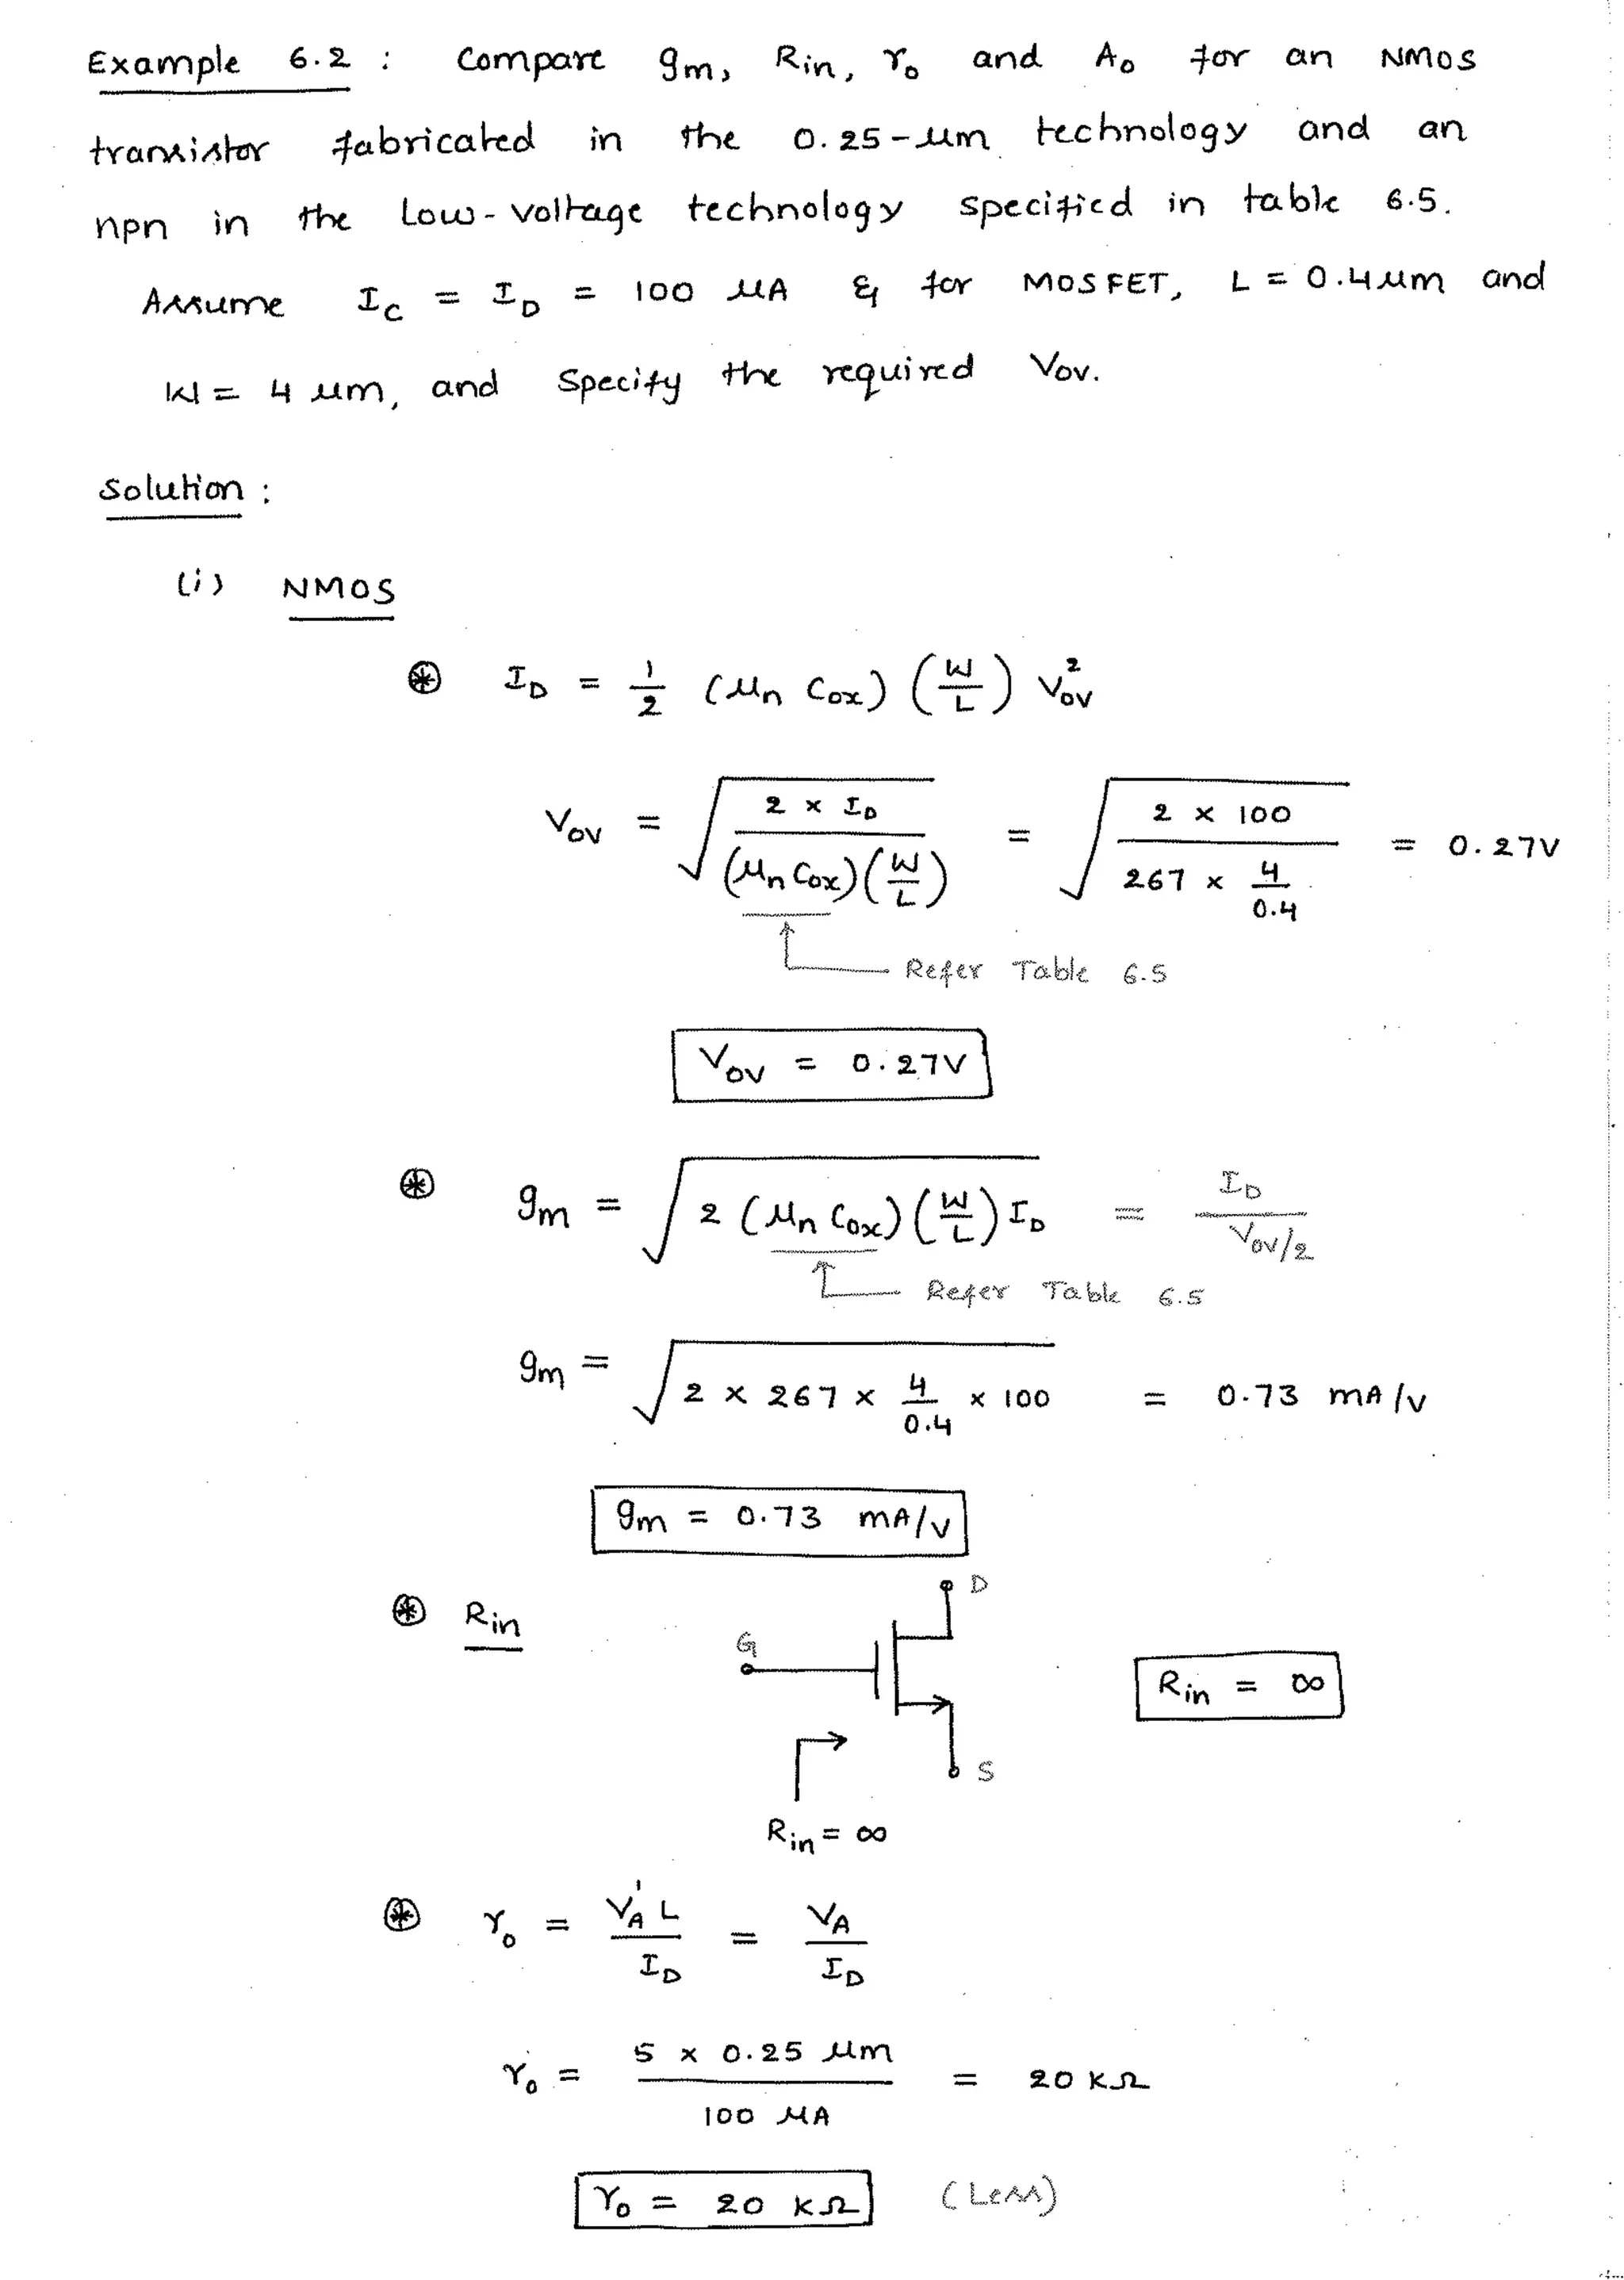 Example 6.2 : Compare gm, Rin, ro and Ao for an NMOS
transistor fabricated in the 0.25-μm technology and an
npn in the Low-Voltage technology specified in table 6.5.
Assume IC = ID = 100 μA & for MOSFET, L = 0.4μm and
W = 4 μm, and Specify the required Vov.
Solution :
(i) NMOS
⊛ ID = 1/2 (μn Cox) (W/L) Vov²
Vov = √(2 × ID / (μn Cox)(W/L)) = √(2 × 100 / 267 × 4/0.4) = 0.27V
Refer Table 6.5
Vov = 0.27V
⊛ gm = √(2 (μn Cox)(W/L) ID) = ID / Vov/2
Refer Table 6.5
gm = √(2 × 267 × 4/0.4 × 100) = 0.73 mA/V
gm = 0.73 mA/V
D
⊛ Rin
G
Rin = ∞
S
Rin = ∞
⊛ ro = VA' L / ID = VA / ID
ro = 5 × 0.25 μm / 100 μA = 20 KΩ
ro = 20 KΩ (Less)